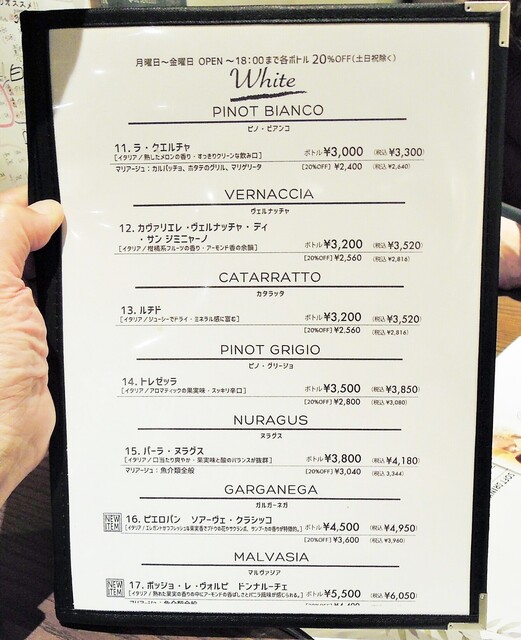 月曜日～金曜日 OPEN ～18:00まで各ボトル 20%OFF(土日祝除く)
White
PINOT BIANCO
ピノ・ビアンコ
11. ラ・クエルチャ ボトル¥3,000 (税込 ¥3,300)
[イタリア/熟したメロンの香り・すっきりクリーンな飲み口] [20%OFF] ¥2,400 (税込 ¥2,640)
マリアージュ:カルパッチョ、ホタテのグリル、マリゲリータ
VERNACCIA
ヴェルナッチャ
12. カヴァリエレ・ヴェルナッチャ・ディ
・サン ジミニャーノ ボトル¥3,200 (税込 ¥3,520)
[イタリア/柑橘系フルーツの香り・アーモンド香の余韻] [20%OFF] ¥2,560 (税込 ¥2,816)
CATARRATTO
カタラッタ
13. ルチド ボトル¥3,200 (税込 ¥3,520)
[イタリア/ジューシーでドライ・ミネラル感に富む] [20%OFF] ¥2,560 (税込 ¥2,816)
PINOT GRIGIO
ピノ・グリージョ
14. トレゼッラ ボトル¥3,500 (税込 ¥3,850)
[イタリア/アロマティックの果実味・スッキリ辛口] [20%OFF] ¥2,800 (税込 ¥3,080)
NURAGUS
ヌラグス
15. パーラ・ヌラグス ボトル¥3,800 (税込 ¥4,180)
[イタリア/口当たり爽やか・果実味と酸のバランスが抜群] [20%OFF] ¥3,040 (税込 3,344)
マリアージュ:魚介類全般
GARGANEGA
ガルガーネガ
NEW ITEM 16. ピエロパン ソアーヴェ・クラシッコ ボトル¥4,500 (税込 ¥4,950)
[イタリア/エレガントかつフレッシュな果実香でブドウの花やサクランボ、サンブーカの香りが特徴的。] [20%OFF] ¥3,600 (税込 ¥3,960)
MALVASIA
マルヴァジア
NEW ITEM 17. ポッジョ・レ・ヴォルピ ドンナルーチェ ボトル¥5,500 (税込 ¥6,050)
[イタリア/熟れた果実の香りの中にアーモンドの香ばしさとバニラ風味が感じられる。]